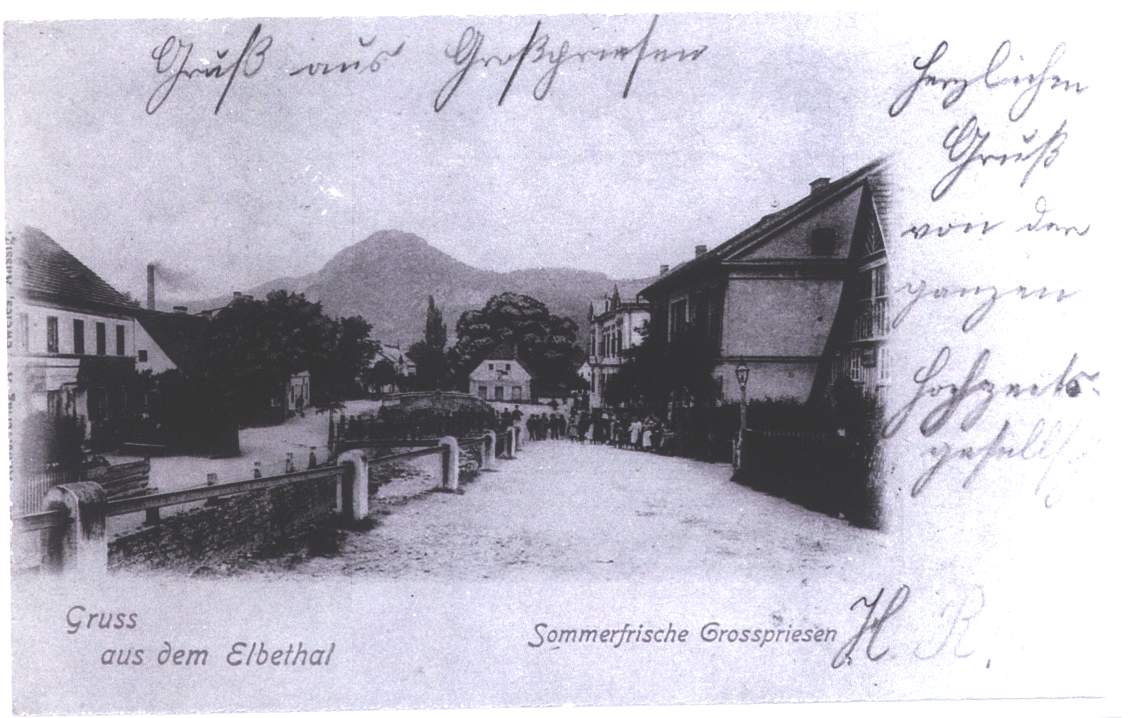 Gruß aus Großpriesen
Herzlichen
Gruß
von der
ganzen
Hochzeits-
gesellsch
Gruss
aus dem Elbethal
Sommerfrische Grosspriesen
H. R.